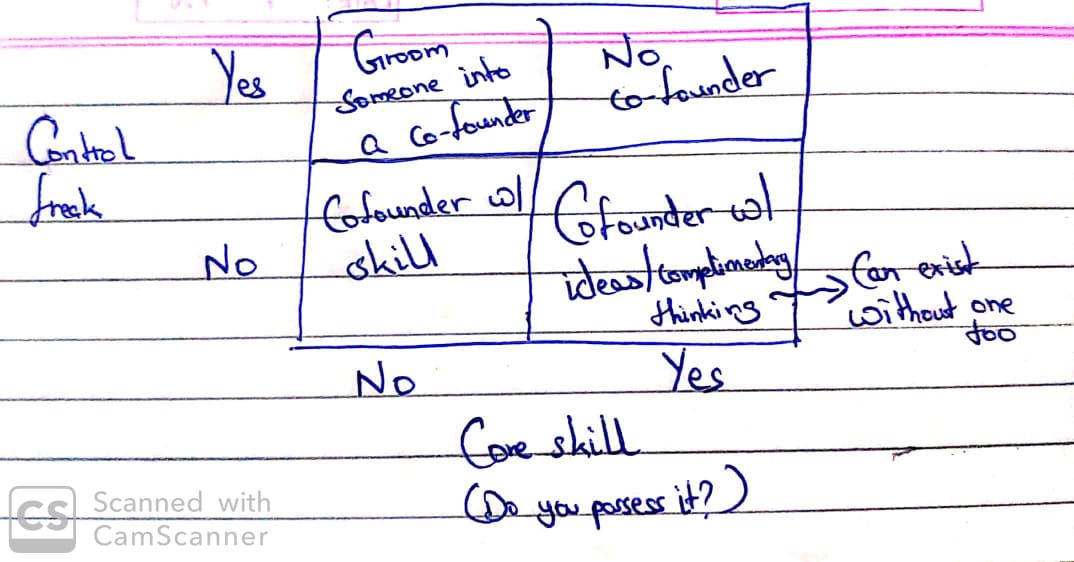 Yes
Groom
someone into
a co-founder
No
co-founder
Control
freak
No
Cofounder w/
skill
Cofounder w/
ideas/complimentary
thinking
Can exist
without one
too
No
Yes
Core skill
(Do you possess it?)
CS
Scanned with
CamScanner